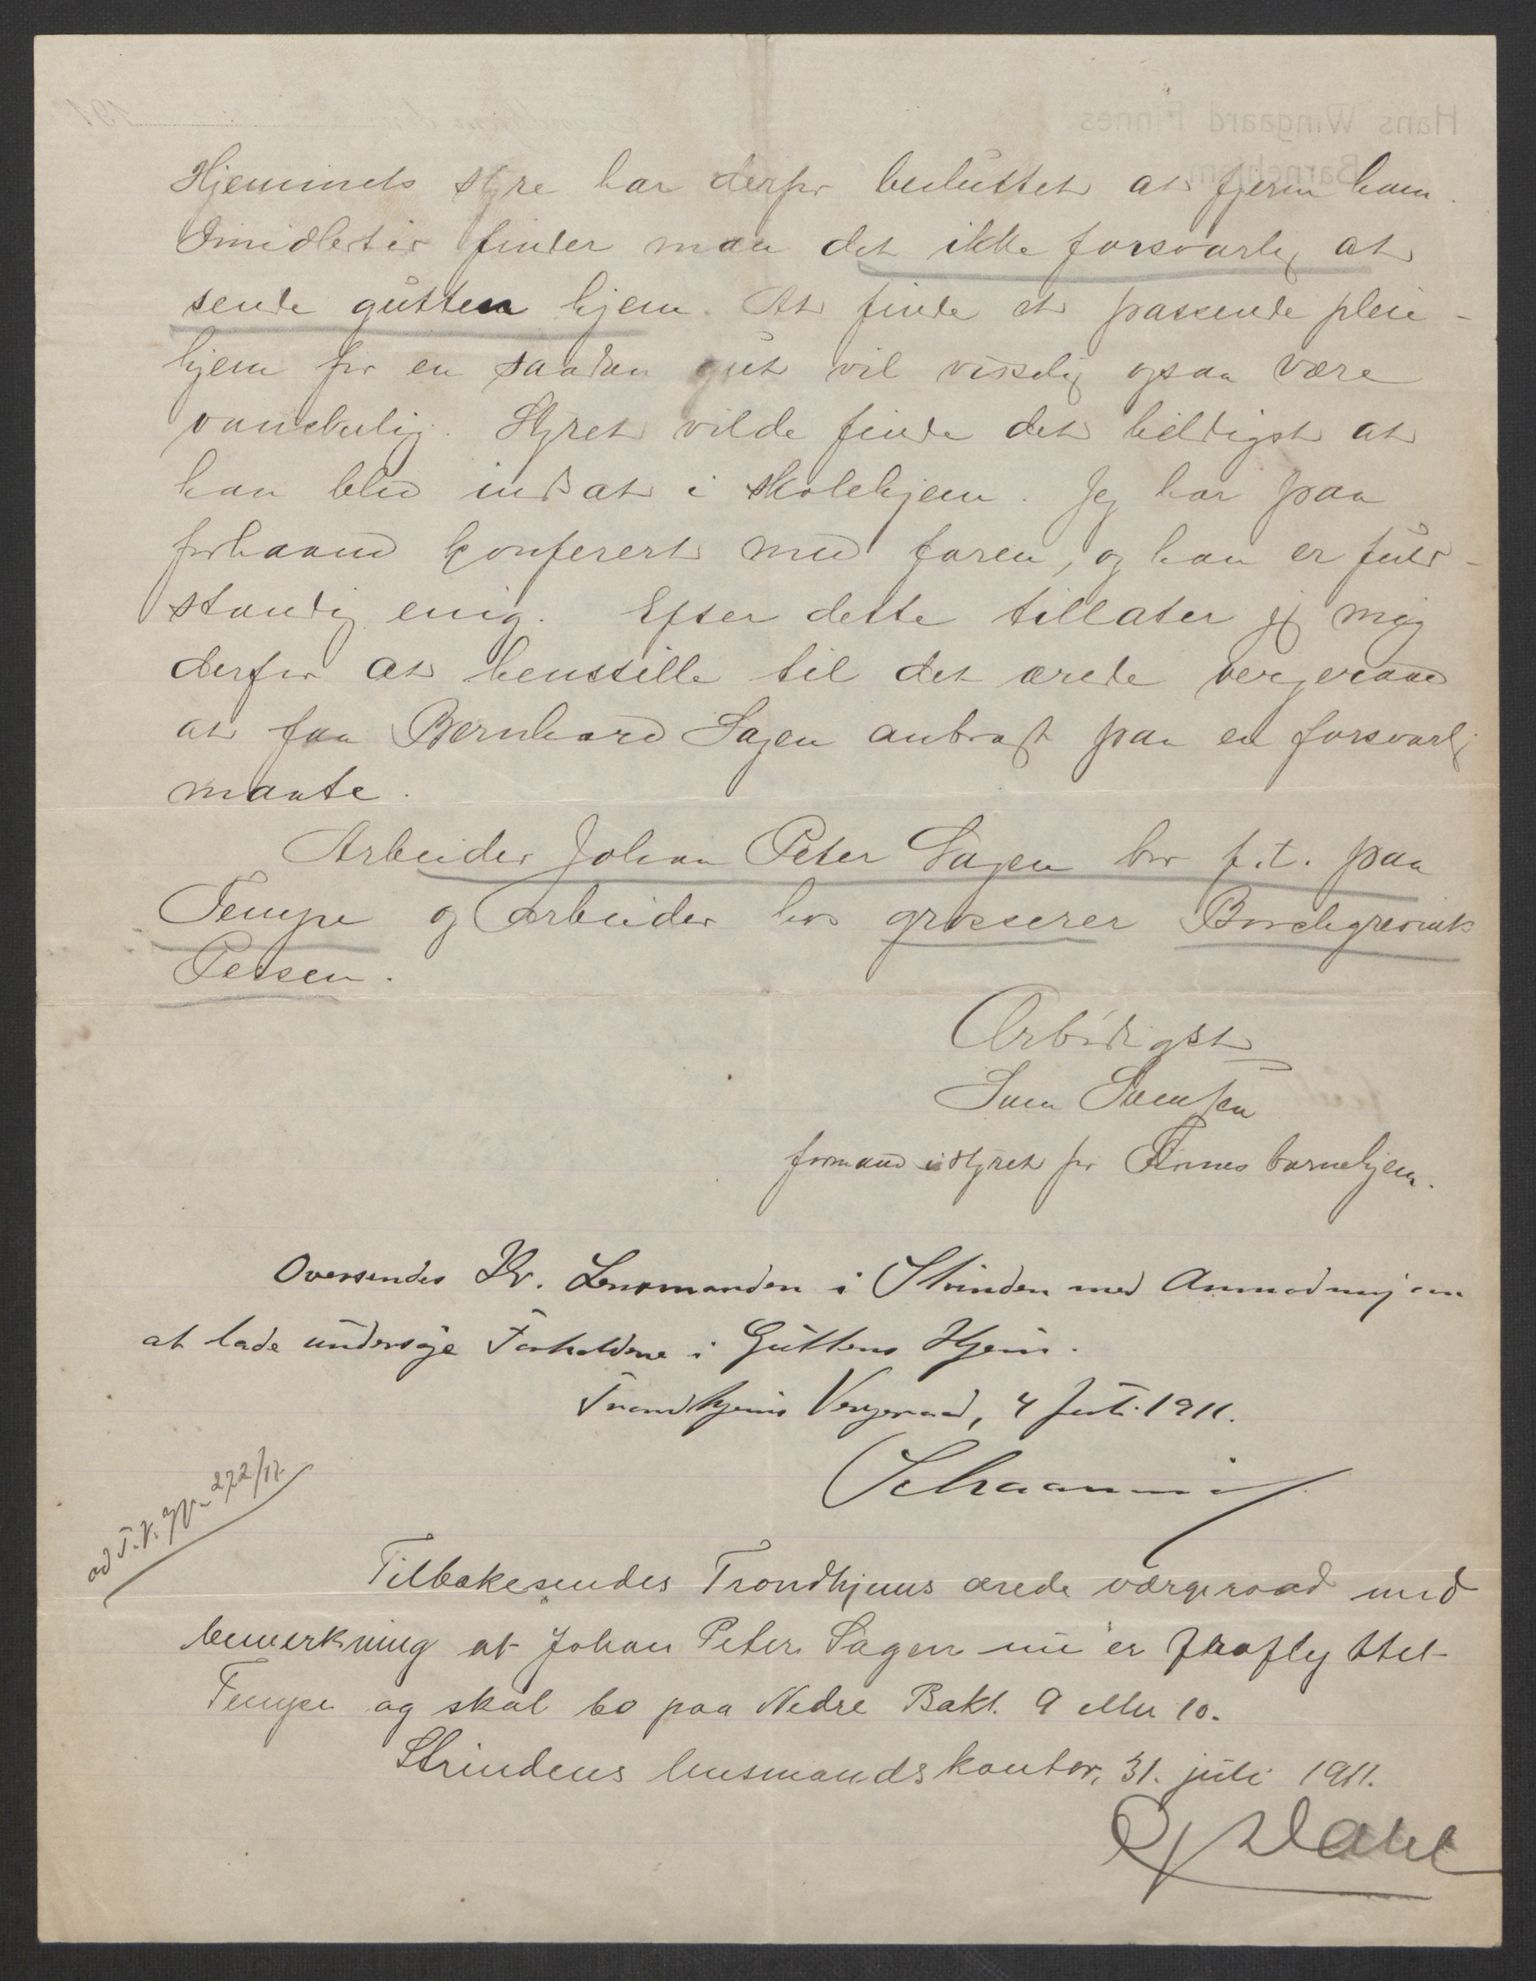 Hjemmets styre har derfor besluttet at fjerne ham.
Imidlertid finder man det ikke forsvarlig at
sende gutten hjem. At finde et passende pleie-
hjem for en saadan gut vil visselig ogsaa være
vanskelig. Styret vilde finde det heldigst at
han blev indsat i skolehjem. Jeg har paa
forhaand konferert med faren, og han er fuld-
standig enig. Efter dette tillater jeg mig
derfor at henstille til det ærede vergeraad
at faa Bernhard Sagen anbragt paa en forsvarlig
maate.
Arbeider Johan Peter Sagen bor f.t. paa
Tempe og arbeider hos grosserer Borchgrevink
Petersen.
Ærbødigst
Sven Svensen
formand i styret for Finnes barnehjem.
Oversendes Hr. Lensmanden i Strinden med Anmodning om
at lade undersøge Forholdene i Guttens Hjem.
Trondhjems Vergeraad, 4 Juli 1911.
ad T.V. 272/11.
Tilbakesendes Trondhjems ærede værgeraad med
bemerkning at Johan Peter Sagen nu er fraflyttet
Tempe og skal bo paa Nedre Bakl. 9 eller 10.
Strindens lensmandskontor, 31. juli 1911.
Dahl
Hans Wingaard Finnes
Barnehjem
191